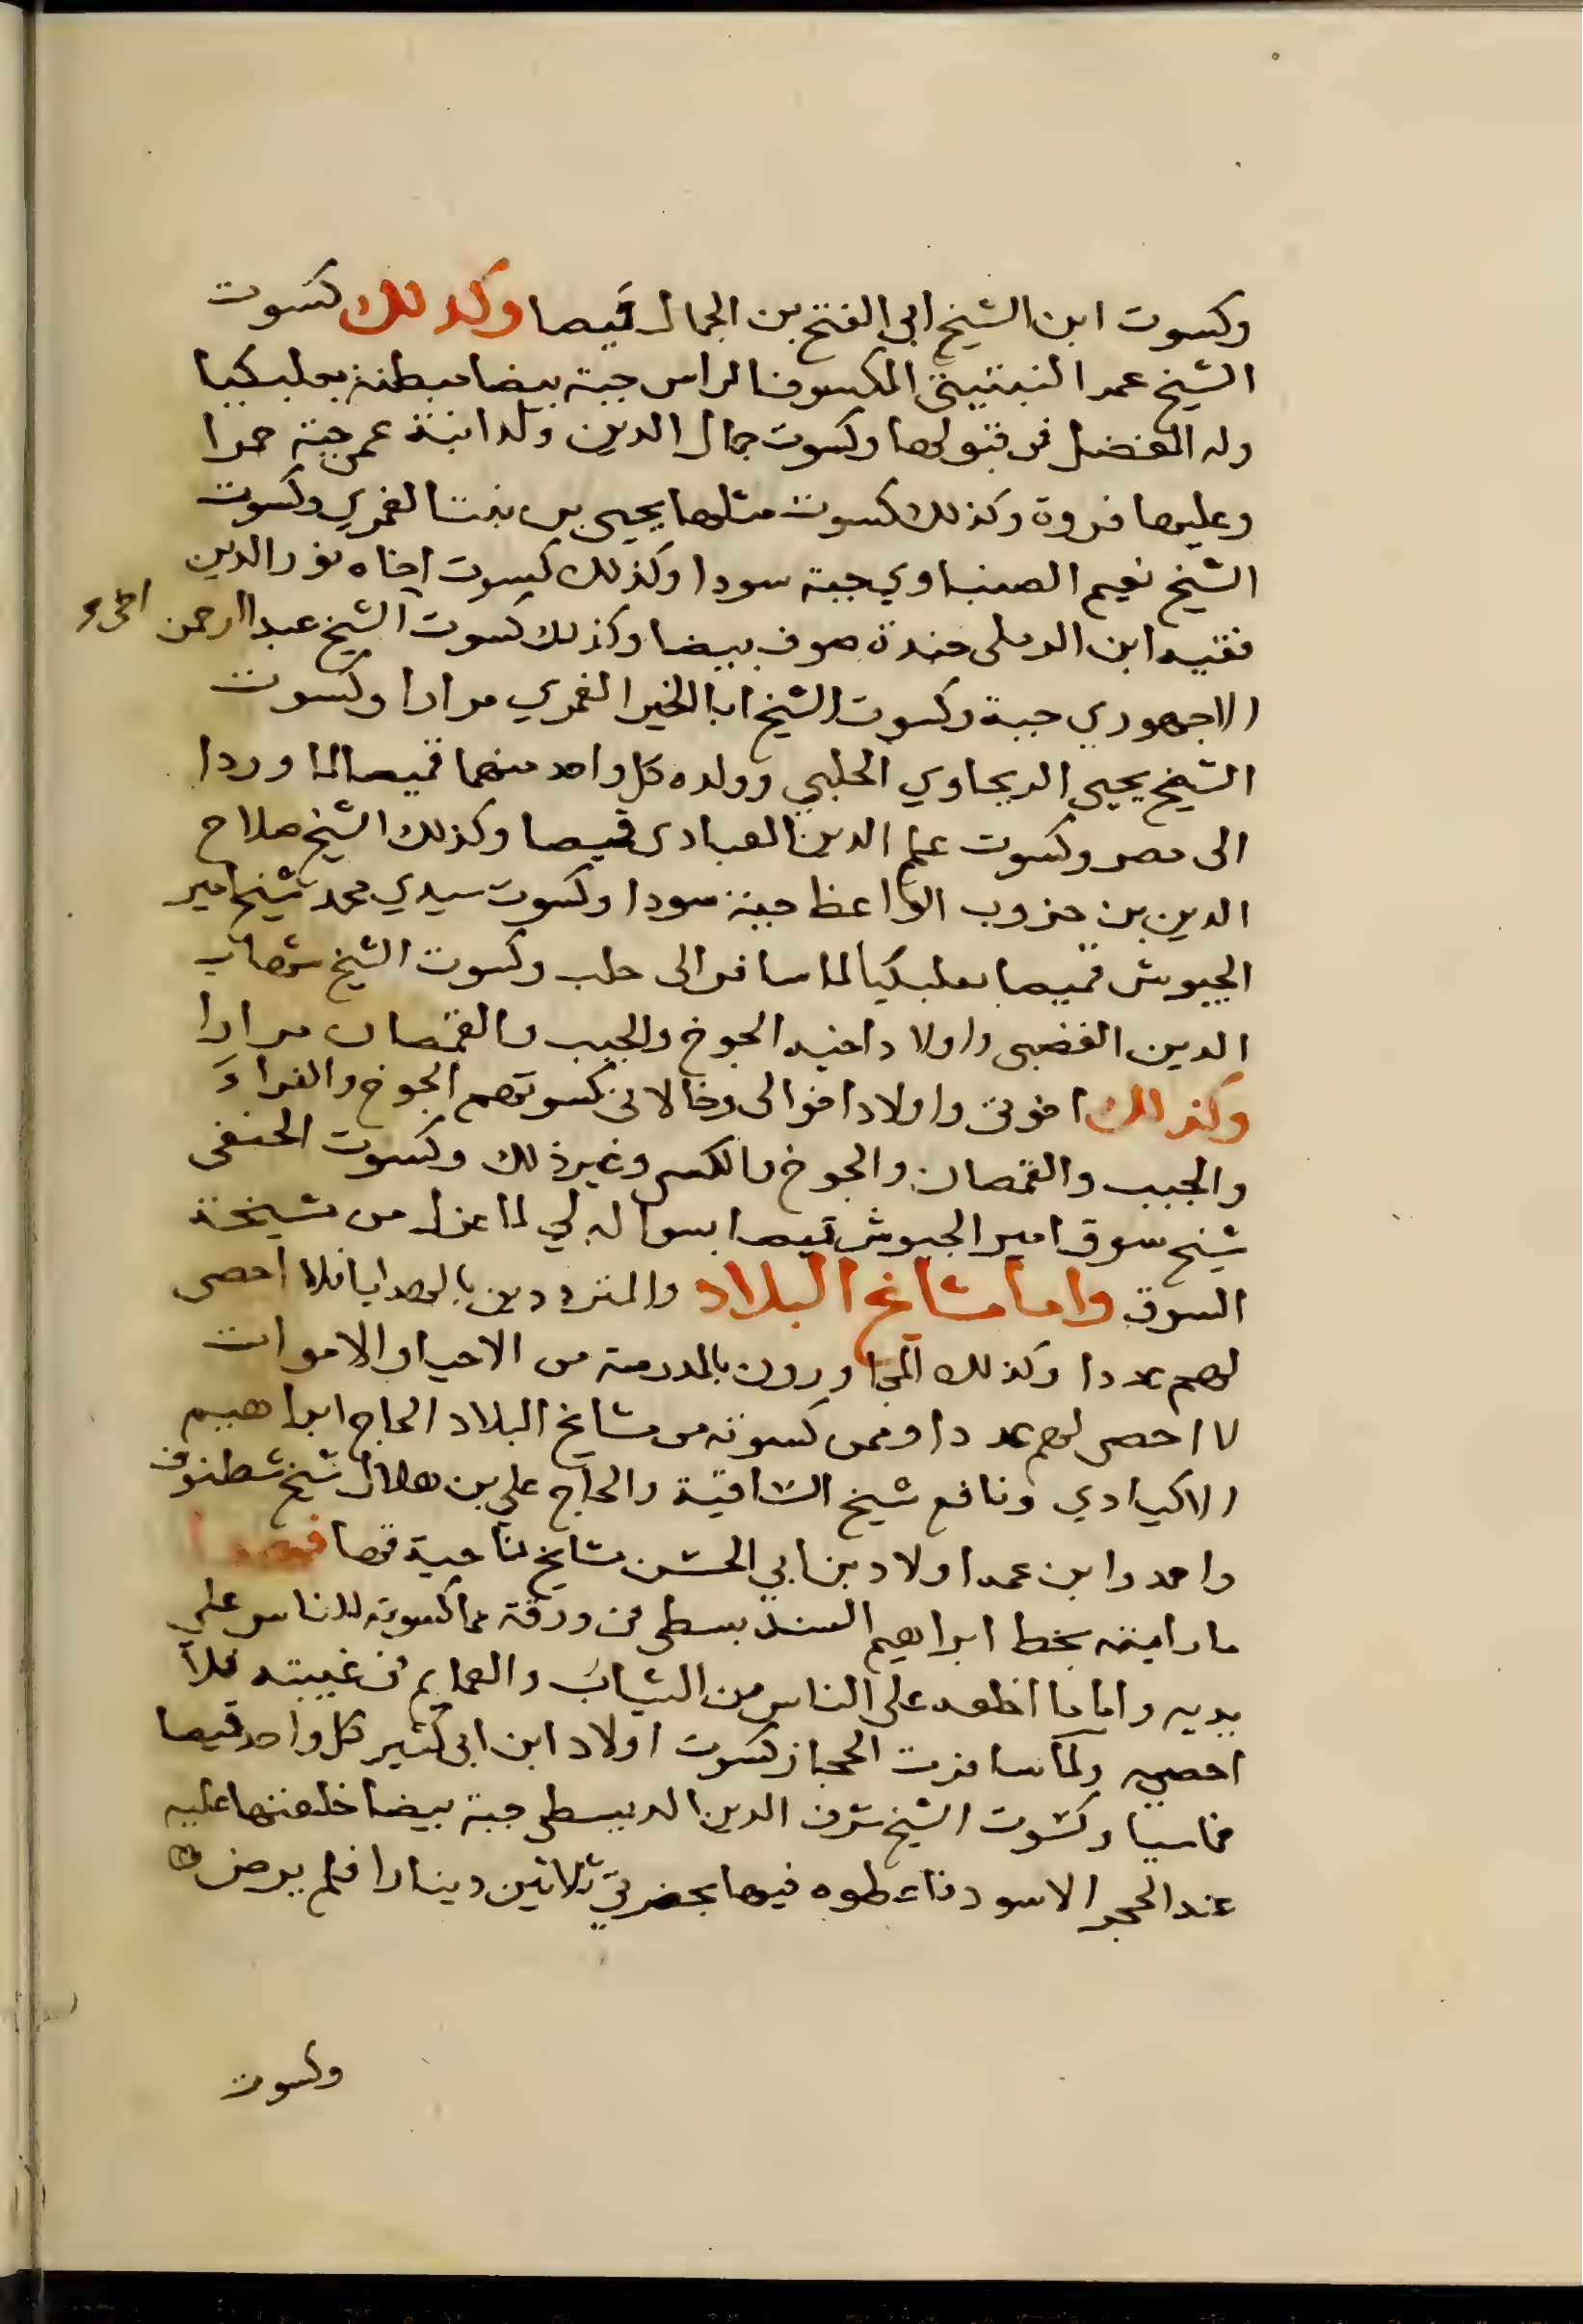 وكسوت ابن الشيخ ابى الفتح بن الجمال قيصا وكذلك كسوت
الشيخ عمر النبتيتى المكسوف الراس جبة بيضا مبطنة بعلبكيا
وله الفضل فى قبولها وكسوت جمال الدين ولد ابنة عمر جبة حمرا
وعليها فروة وكذلك كسوت مثلها يحيى بن بنت الغمري وكسوت
الشيخ نعيم الصنباوي جبة سودا وكذلك كسوت اخاه نور الدين
فقيه ابن الرملى جندة صوف بيضا وكذلك كسوت الشيخ عبد الرحمن
الاجهوري جبة وكسوت الشيخ ابا الخير الغمري مرارا وكسوت
الشيخ يحيى الريحاوي الحلبي وولده كل واحد منهما قميصا لما وردا
الى مصر وكسوت علم الدين العبادى قميصا وكذلك الشيخ صلاح
الدين بن خروب الواعظ جبة سودا وكسوت سيدي محمد شيخ امير
الجيوش قميصا بعلبكيا لما سافر الى حلب وكسوت الشيخ شهاب
الدين الغضبى واولاد اخيه الجوخ والجبب والقمصان مرارا
وكذلك اخوتى واولاد اخوالى وخالاتى كسوتهم الجوخ والفراء
والجبب والقمصان والجوخ والكسى وغير ذلك وكسوت الحنفى
شيخ سوق امير الجيوش قيصا بسواله لي لما عزل من مشيخة
السوق واما مشايخ البلاد والمترددين بالهدايا فلا احصى
لهم عددا وكذلك المجاورون بالمدرسة من الاحيا والاموات
لا احصى لهم عددا وممن كسوته من مشايخ البلاد الحاج ابراهيم
الاكيادي ونافع شيخ الساقية والحاج علي بن هلال شيخ شطنوف
واحمد وابن عمه اولاد بن ابي الحسن مشايخ ناحية قصا فهذا
ما رايته بخط ابراهيم السندبسطى فى ورقة مما كسوته للناس على
يديه واما ما اخلعه على الناس من الثياب والعمايم فى غيبته فلا
احصيه ولما سافرت الحجاز كسوت اولاد ابن ابى كثير كل واحد قيصا
خاسيا وكسوت الشيخ شرف الدين الديسطى جبة بيضا خلعتها عليه
عند الحجر الاسود فاعطوه فيها بحضرتي ثلاثين دينارا فلم يرض
وكسوت